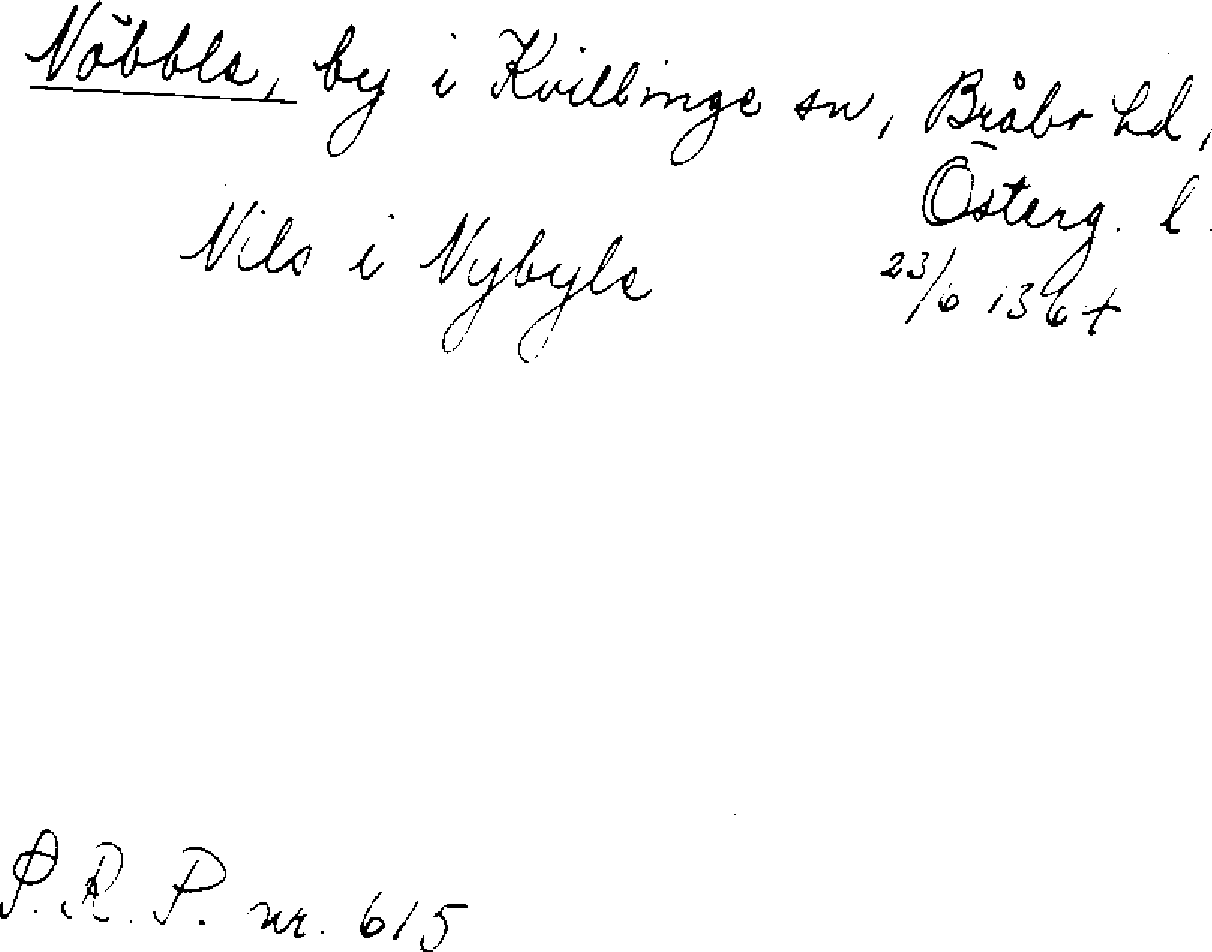 Nöbble, by i Kvillinge sn, Bråbo hd,
Österg. l.
Nils i Nybyle 23/6 1364
S.R.P. nr. 615